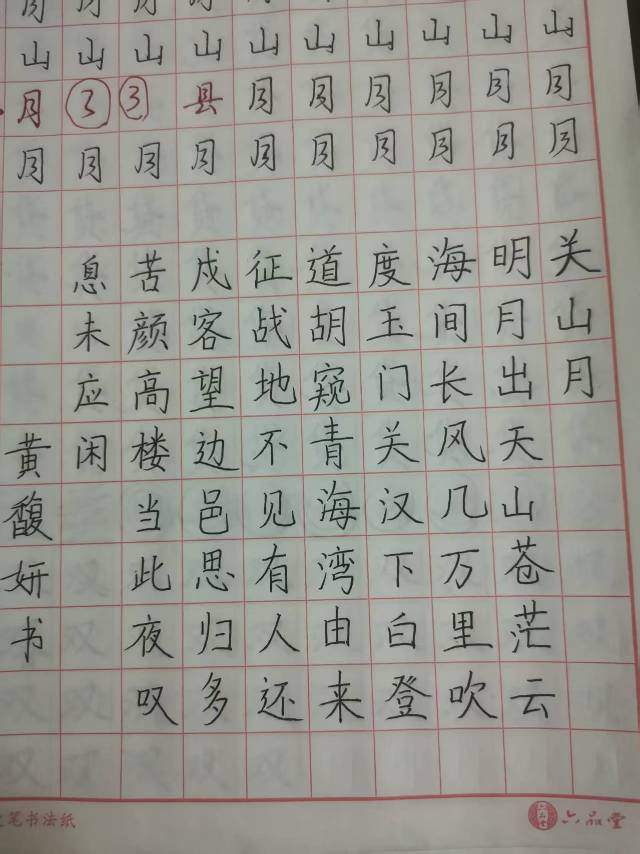 山山山山山山山山山山
月 3 3 县 月月月月月月
月月月月月月月月月月
关山月
明月出天山苍茫云
海间长风几万里吹
度玉门关汉下白登
道胡窥青海湾由来
征战地不见有人还
戍客望边邑思归多
苦颜高楼当此夜叹
息未应闲
黄馥妍书
笔书法纸
六品堂